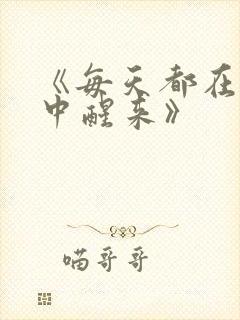 《每天都在
中醒来》
喵哥哥